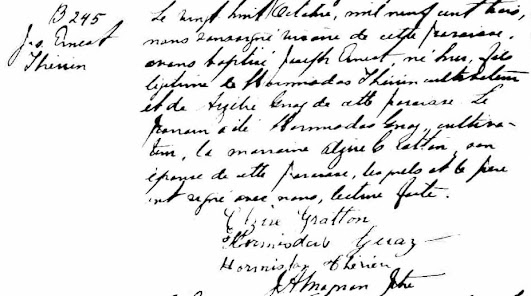 B 245
Jos. Ernest
Thérien
Le vingt huit Octobre, mil neuf cent trois,
nous soussigné vicaire de cette paroisse,
avons baptisé Joseph Ernest, né hier, fils
légitime de Hormisdas Thérien cultivateur
et de Guay de cette paroisse. Le
parrain a été Hormisdas Guay, cultiva-
teur, la marraine Alzire Gratton, son
épouse de cette paroisse, lesquels et le père
ont signé avec nous, lecture faite.
Elzire Gratton
Hormisdas Guay
Hormisdas Thérien
J. A. Magnan Ptre